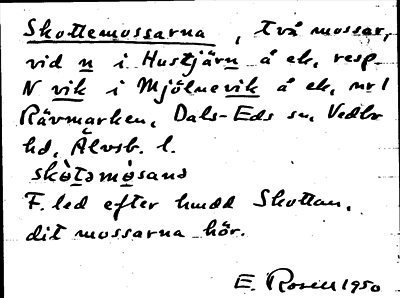 Skottemossarna, två mossar,
vid n i Hustjärn å ek, resp.
N vik i Mjölnevik å ek, nr 1
Rävmarken, Dals-Eds sn, Vedbo
hd, Älvsb. l.
skòtəmòsanə
F. led efter hmdd Skottan,
dit mossarna hör.
E. Rosell 1950